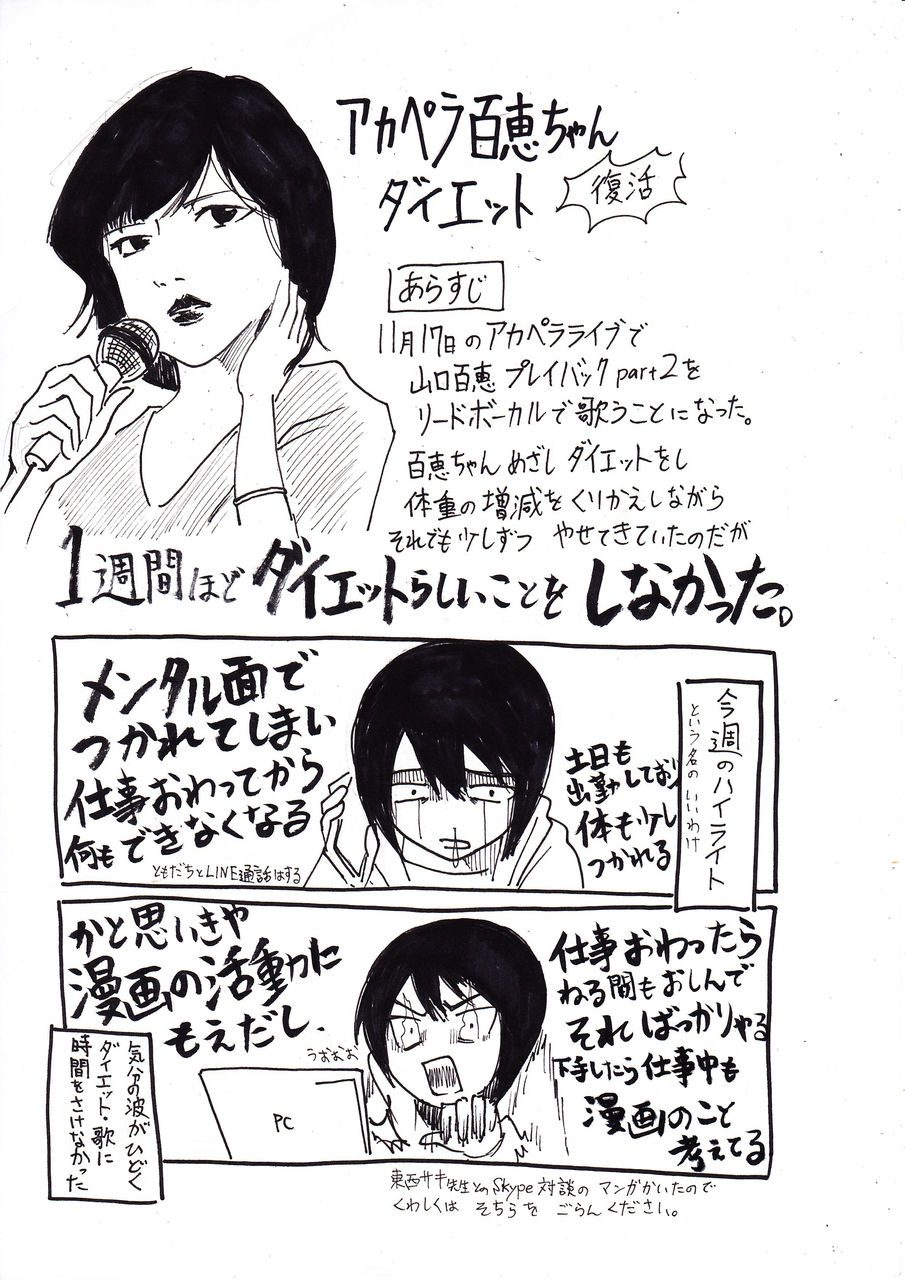 アカペラ百恵ちゃん
ダイエット
復活
あらすじ
11月17日のアカペラライブで
山口百恵 プレイバック part2を
リードボーカルで歌うことになった。
百恵ちゃんめざし ダイエットをし
体重の増減をくりかえしながら
それでも少しずつ やせてきていたのだが
1週間ほどダイエットらしいことをしなかった。
今週のハイライト
という名のいいわけ
土日も
出勤しており
体も少し
つかれる
メンタル面で
つかれてしまい
仕事おわってから
何もできなくなる
ともだちとLINE通話はする
仕事おわったら
ねる間もおしんで
そればっかりやる
下手したら仕事中も
漫画のこと
考えてる
かと思いきや
漫画の活動に
もえだし、
うおおお
PC
気分の波がひどく
ダイエット・歌に
時間をさけなかった
東西サキ先生とのSkype対談の マンガかいたので
くわしくは そちらを ごらんください。